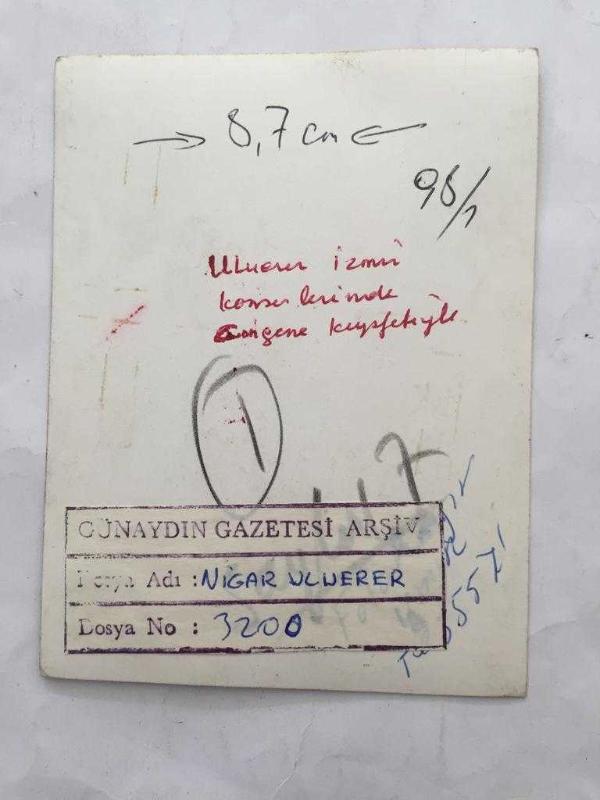 → 8,7 cm ←
98/1
Uluerer İzmir
konserlerinde
Çingene kıyafetiyle
1
GÜNAYDIN GAZETESİ ARŞİV
Adı : NİGAR ULUERER
Dosya No : 3200